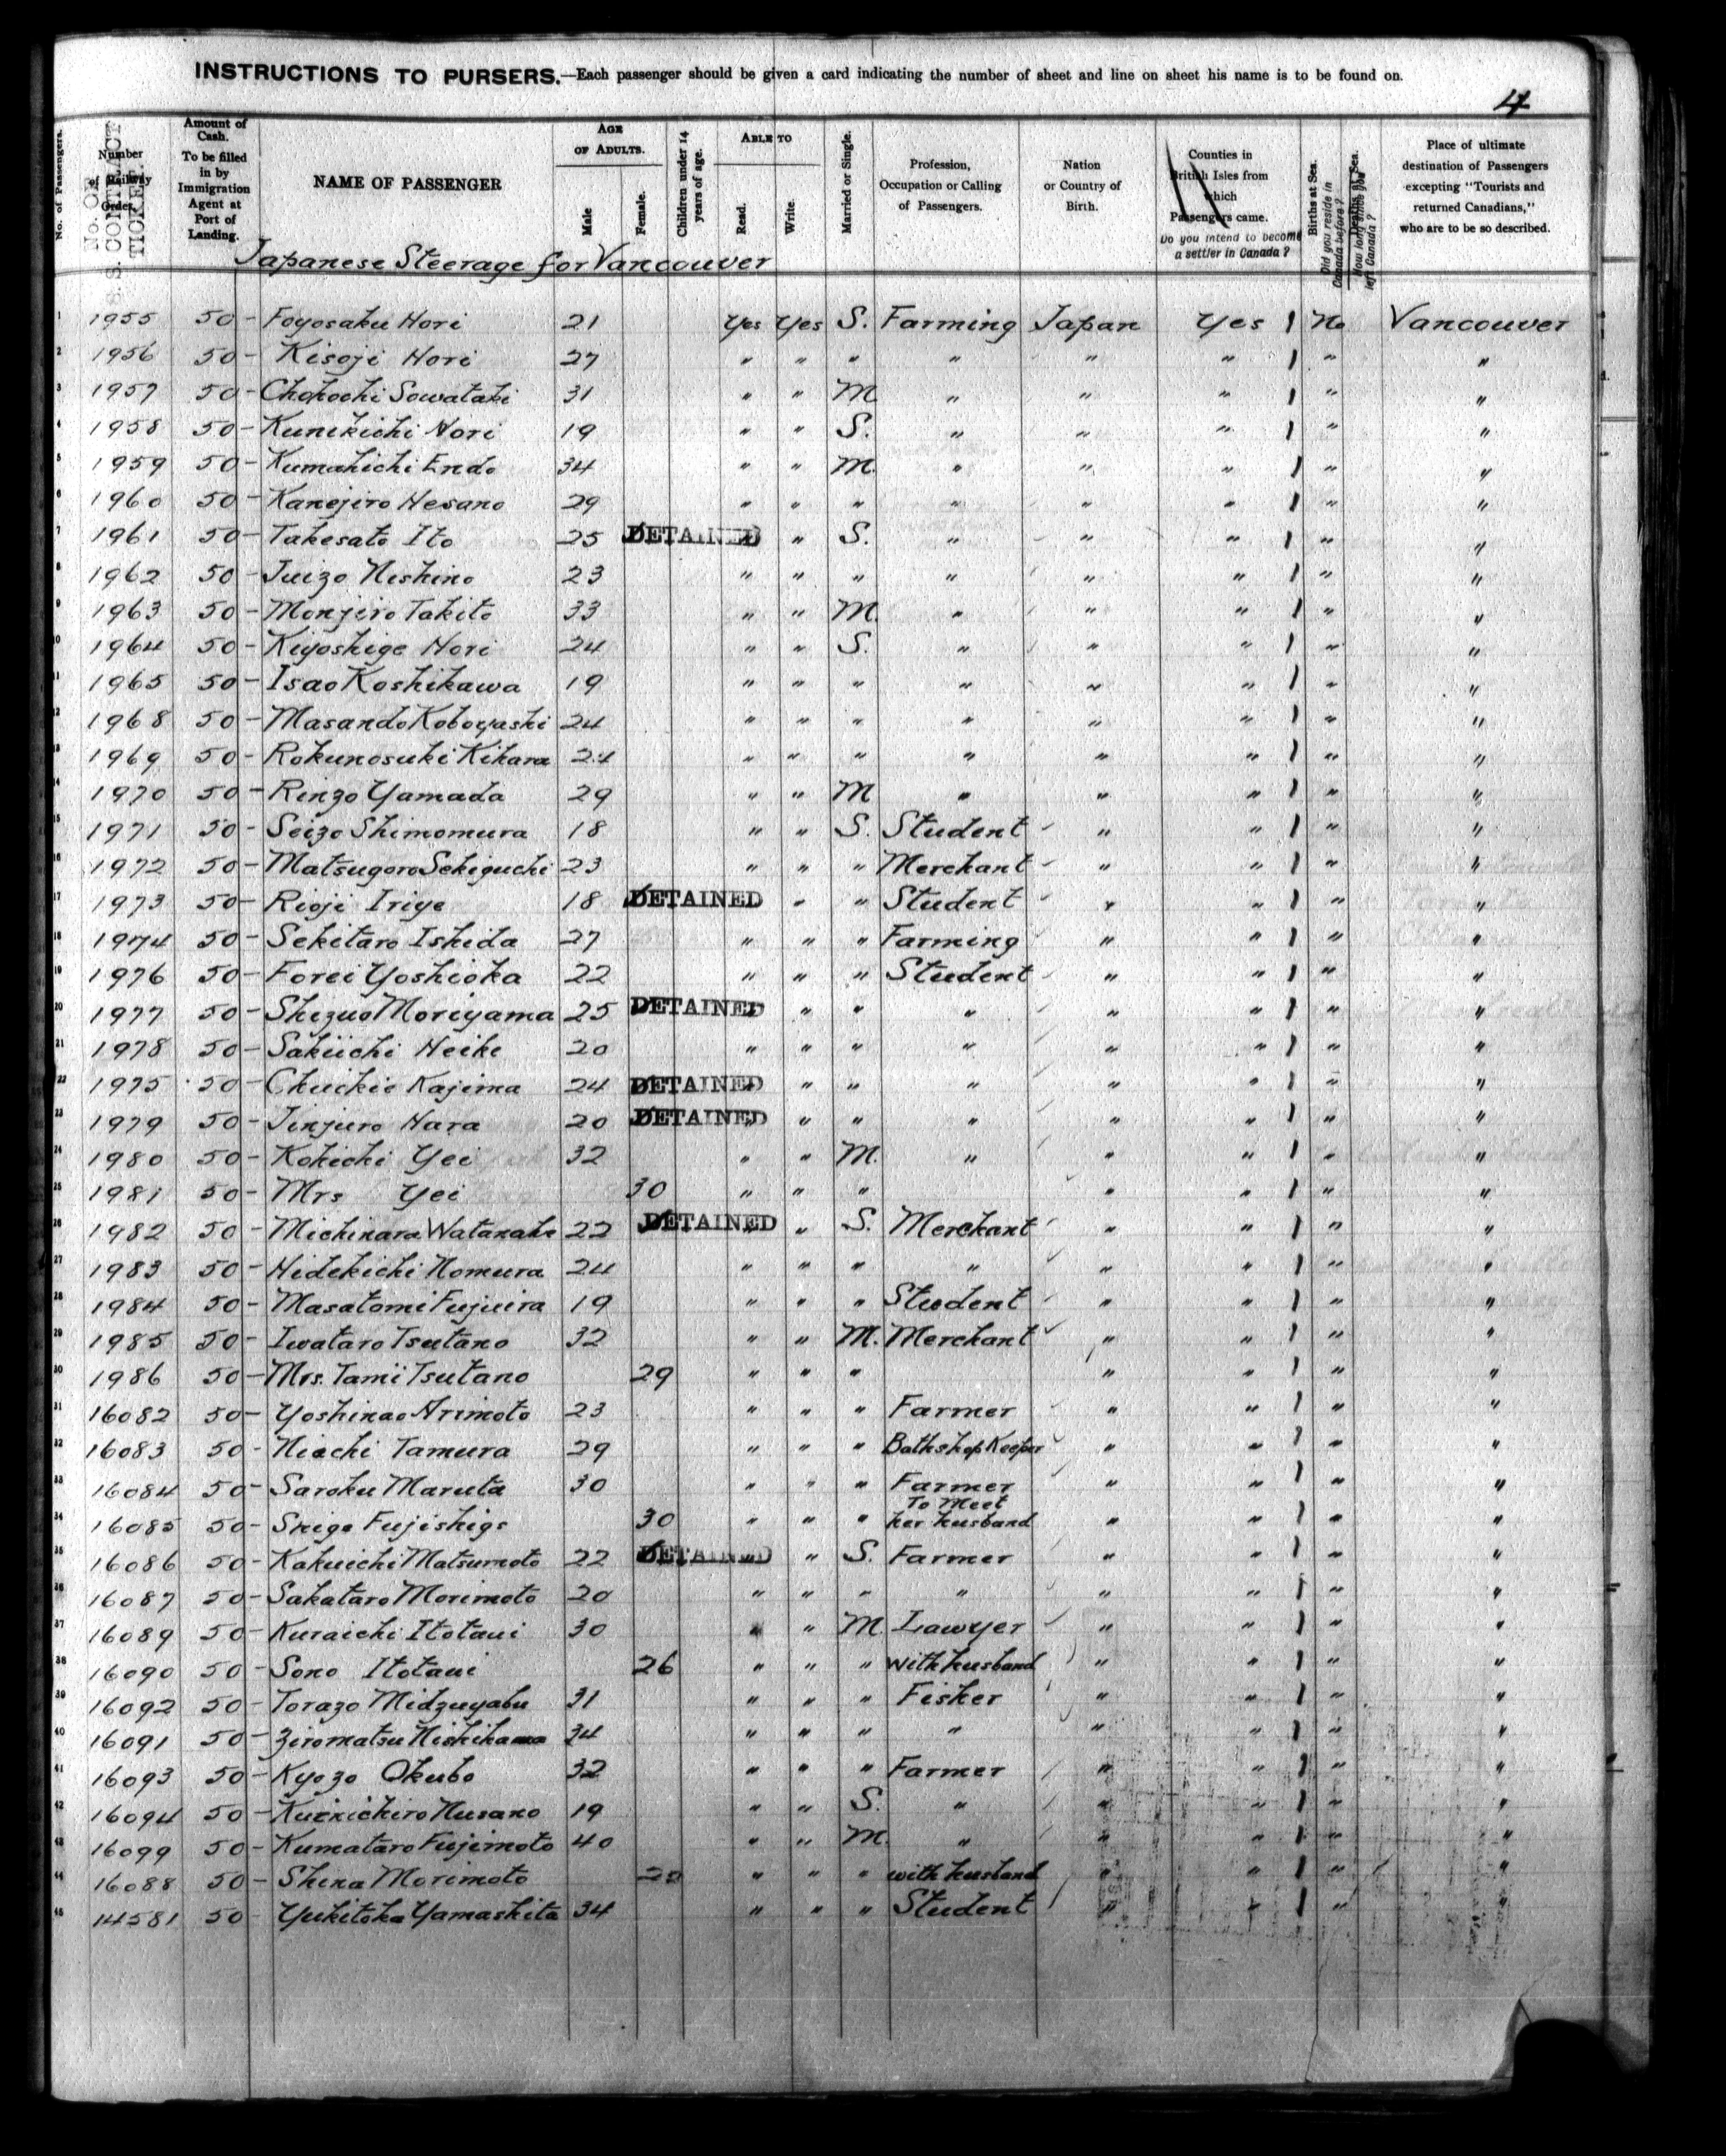 INSTRUCTIONS TO PURSERS.—Each passenger should be given a card indicating the number of sheet and line on sheet his name is to be found on.
4
No. of Passengers.
Number of Railway Order.
No. OF S. S. CONTRACT TICKET.
Amount of Cash. To be filled in by Immigration Agent at Port of Landing.
NAME OF PASSENGER
AGE OF ADULTS.
Male
Female.
Children under 14 years of age.
ABLE TO
Read.
Write.
Married or Single.
Profession, Occupation or Calling of Passengers.
Nation or Country of Birth.
Counties in British Isles from which Passengers came.
Do you intend to become a settler in Canada?
Births at Sea.
Did you reside in Canada before?
Deaths at Sea.
How long since you left Canada?
Place of ultimate destination of Passengers excepting "Tourists and returned Canadians," who are to be so described.
Japanese Steerage for Vancouver
1 1955 50- Foyosaku Hori 21 Yes Yes S. Farming Japan Yes 1 No Vancouver
2 1956 50- Kisoji Hori 27 " " " " " " 1 " "
3 1957 50- Chohochi Sowataki 31 " " M " " " 1 " "
4 1958 50- Kunikichi Hori 19 " " S. " " " 1 " "
5 1959 50- Kumahichi Endo 34 " " M. " " " 1 " "
6 1960 50- Kanejiro Hesano 29 " " " " " " 1 " "
7 1961 50- Takesato Ito 25 DETAINED " " S. " " " 1 " "
8 1962 50- Juizo Nishino 23 " " " " " " 1 " "
9 1963 50- Monjiro Takito 33 " " M. " " " 1 " "
10 1964 50- Kiyoshige Hori 24 " " S. " " " 1 " "
11 1965 50- Isao Koshikawa 19 " " " " " " 1 " "
12 1968 50- Masando Koboyashi 24 " " " " " " 1 " "
13 1969 50- Rokunosuki Kihara 24 " " " " " " 1 " "
14 1970 50- Rinzo Yamada 29 " " M " " " 1 " "
15 1971 50- Seizo Shimomura 18 " " S. Student " " 1 " "
16 1972 50- Matsugoro Sekiguchi 23 " " " Merchant " " 1 " "
17 1973 50- Rioji Iriye 18 DETAINED " " Student " " 1 " "
18 1974 50- Sekitaro Ishida 27 " " " Farming " " 1 " "
19 1976 50- Forei Yoshioka 22 " " " Student " " 1 " "
20 1977 50- Shizuo Moriyama 25 DETAINED " " " " " " 1 " "
21 1978 50- Sakiichi Heike 20 " " " " " " 1 " "
22 1975 50- Chuichio Kajima 24 DETAINED " " " " " " 1 " "
23 1979 50- Jinjuro Hara 20 DETAINED " " " " " " 1 " "
24 1980 50- Kohichi Yei 32 " " M. " " " 1 " "
25 1981 50- Mrs Yei 30 " " " " " 1 " "
26 1982 50- Michinara Watanabe 22 DETAINED " " S. Merchant " " 1 " "
27 1983 50- Hidekichi Nomura 24 " " " " " " 1 " "
28 1984 50- Masatomi Fujiira 19 " " " Student " " 1 " "
29 1985 50- Iwataro Tsutano 32 " " M. Merchant " " 1 " "
30 1986 50- Mrs. Tami Tsutano 29 " " " " " 1 " "
31 16082 50- Yoshinao Arimoto 23 " " " Farmer " " 1 " "
32 16083 50- Niachi Tamura 29 " " " Bathshop Keeper " " 1 " "
33 16084 50- Saroku Maruta 30 " " " Farmer " " 1 " "
34 16085 50- Shige Fujishige 30 " " " To Meet her husband " " 1 " "
35 16086 50- Kakuichi Matsumoto 22 DETAINED " " S. Farmer " " 1 " "
36 16087 50- Sakataro Morimoto 20 " " " " " " 1 " "
37 16089 50- Kuraichi Itotani 30 " " M. Lawyer " " 1 " "
38 16090 50- Sono Itotani 26 " " " with husband " " 1 " "
39 16092 50- Torazo Midzuyabu 31 " " " Fisher " " 1 " "
40 16091 50- Ziromatsu Nishikawa 34 " " " " " " 1 " "
41 16093 50- Kyozo Okubo 32 " " " Farmer " " 1 " "
42 16094 50- Kuenichiro Husano 19 " " S. " " " 1 " "
43 16099 50- Kumataro Fujimoto 40 " " M. " " " 1 " "
44 16088 50- Shina Morimoto " " " with husband " " 1 " "
45 14581 50 Yukitoka Yamashita 34 " " " Student " " 1 " "